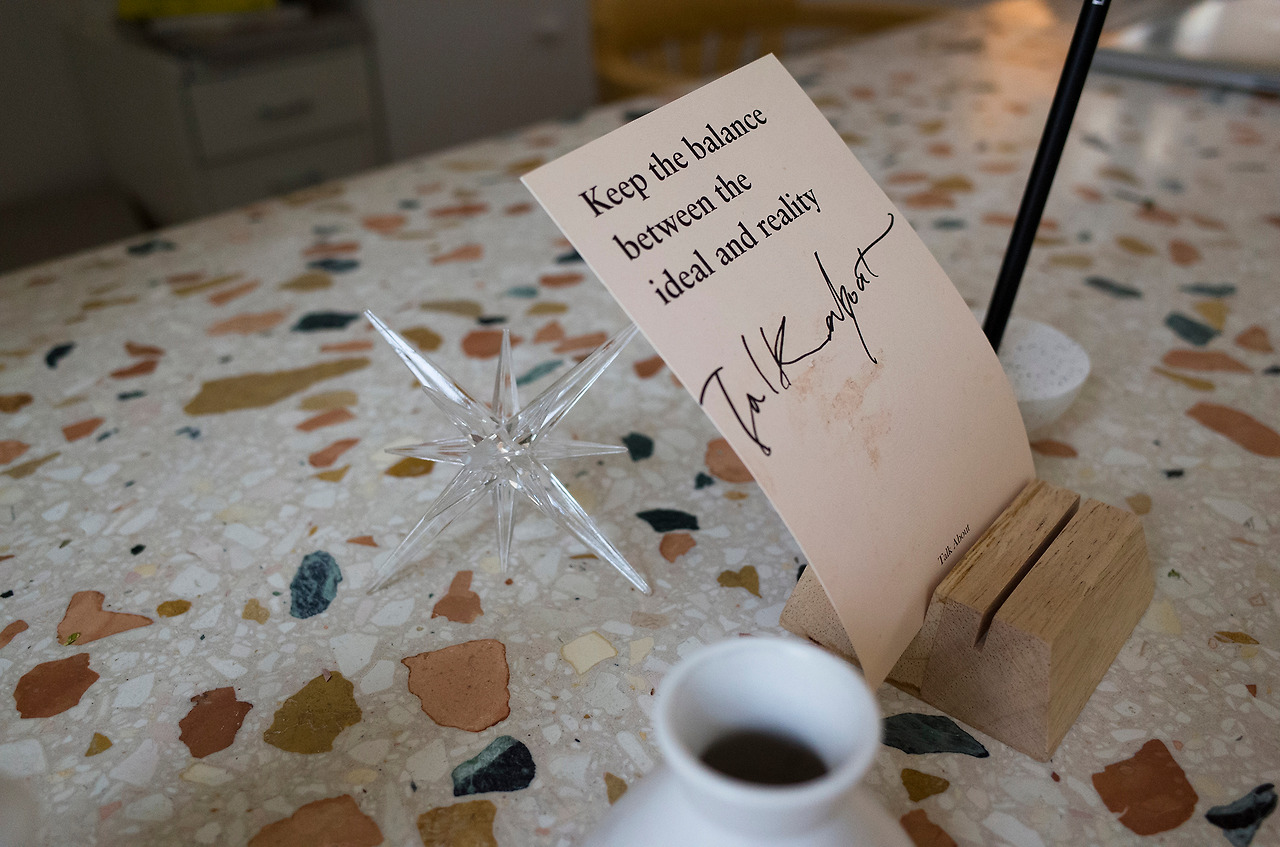 Keep the balance
between the
ideal and reality
Talk about
Talk About